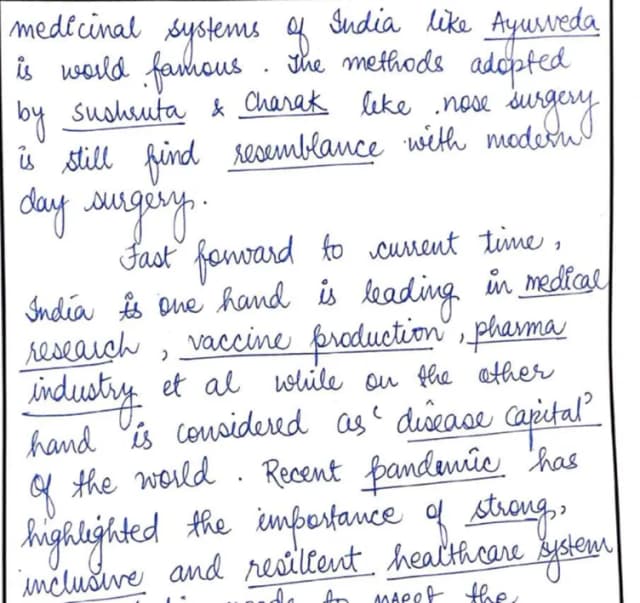 medicinal systems of India like Ayurveda
is world famous . The methods adopted
by Sushruta & Charak like nose surgery
is still find resemblance with modern
day surgery.
Fast forward to current time ,
India is one hand is leading in medical
research , vaccine production , pharma
industry et al while on the other
hand is considered as ‘disease capital’
of the world . Recent pandemic has
highlighted the importance of strong,
inclusive and resilient healthcare system
to meet the